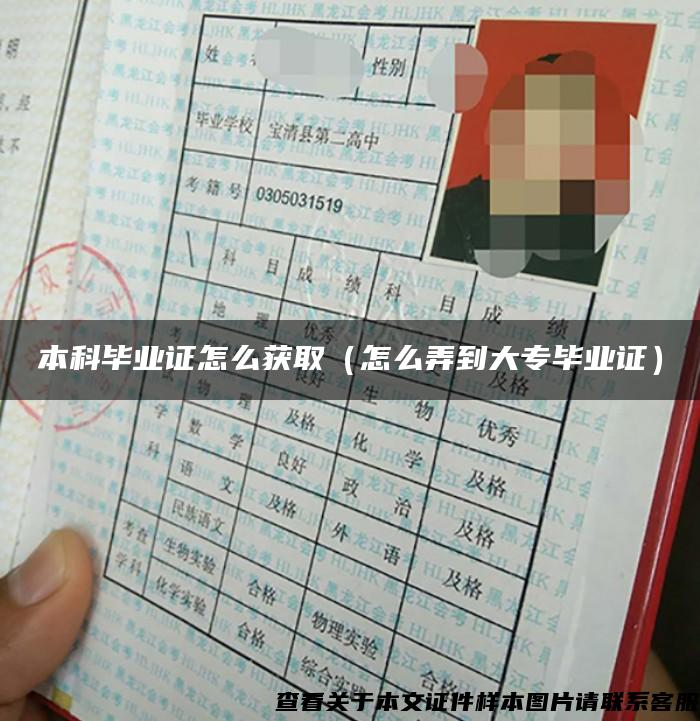 明
经
不
姓 性别
毕业学校 宝清县第二高中
考籍号 0305031519
科目 成绩 科目 成绩
地理 优秀
本科毕业证怎么获取（怎么弄到大专毕业证）
良好 及格
物理 及格 生物 优秀
数学 良好 化学 及格
语文 及格 政治 及格
民族语文 外语 及格
学科
考查学科 生物实验 合格 物理实验
化学实验 合格 综合实 合格
黑龙江会考 HLJHK
查看关于本文证件样本图片请联系客服